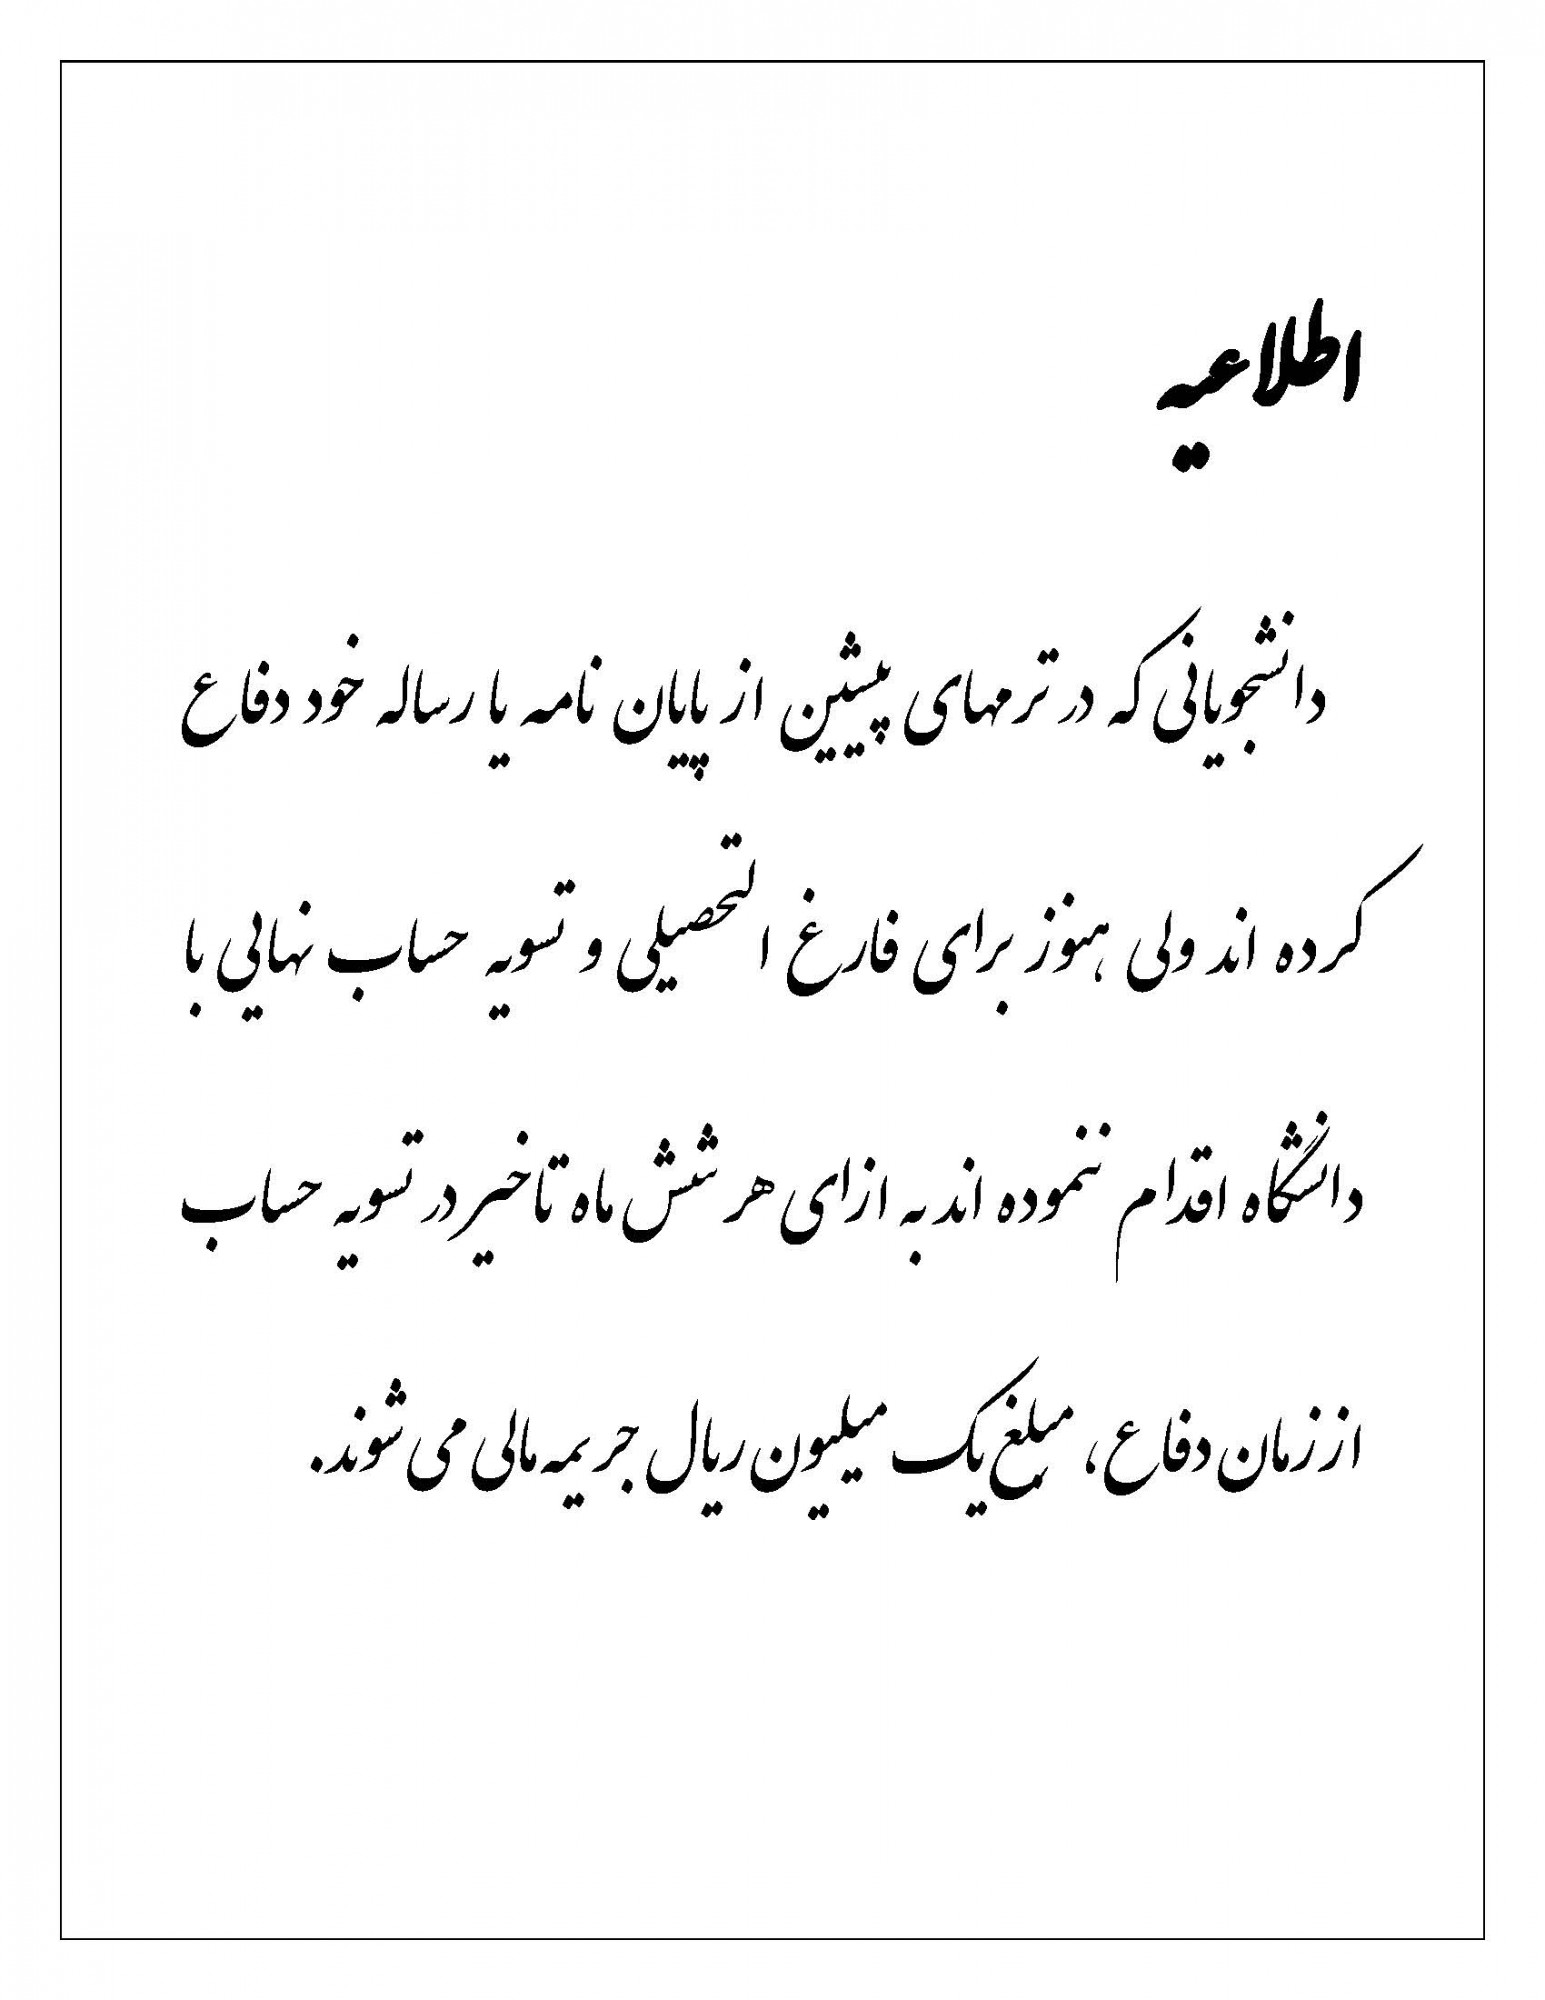 اطلاعیه
دانشجویانی که در ترمهای پیشین از پایان نامه یا رساله خود دفاع
کرده اند ولی هنوز برای فارغ التحصیلی و تسویه حساب نهایی با
دانشگاه اقدام ننموده اند به ازای هر شش ماه تاخیر در تسویه حساب
از زمان دفاع، مبلغ یک میلیون ریال جریمه مالی می شوند.